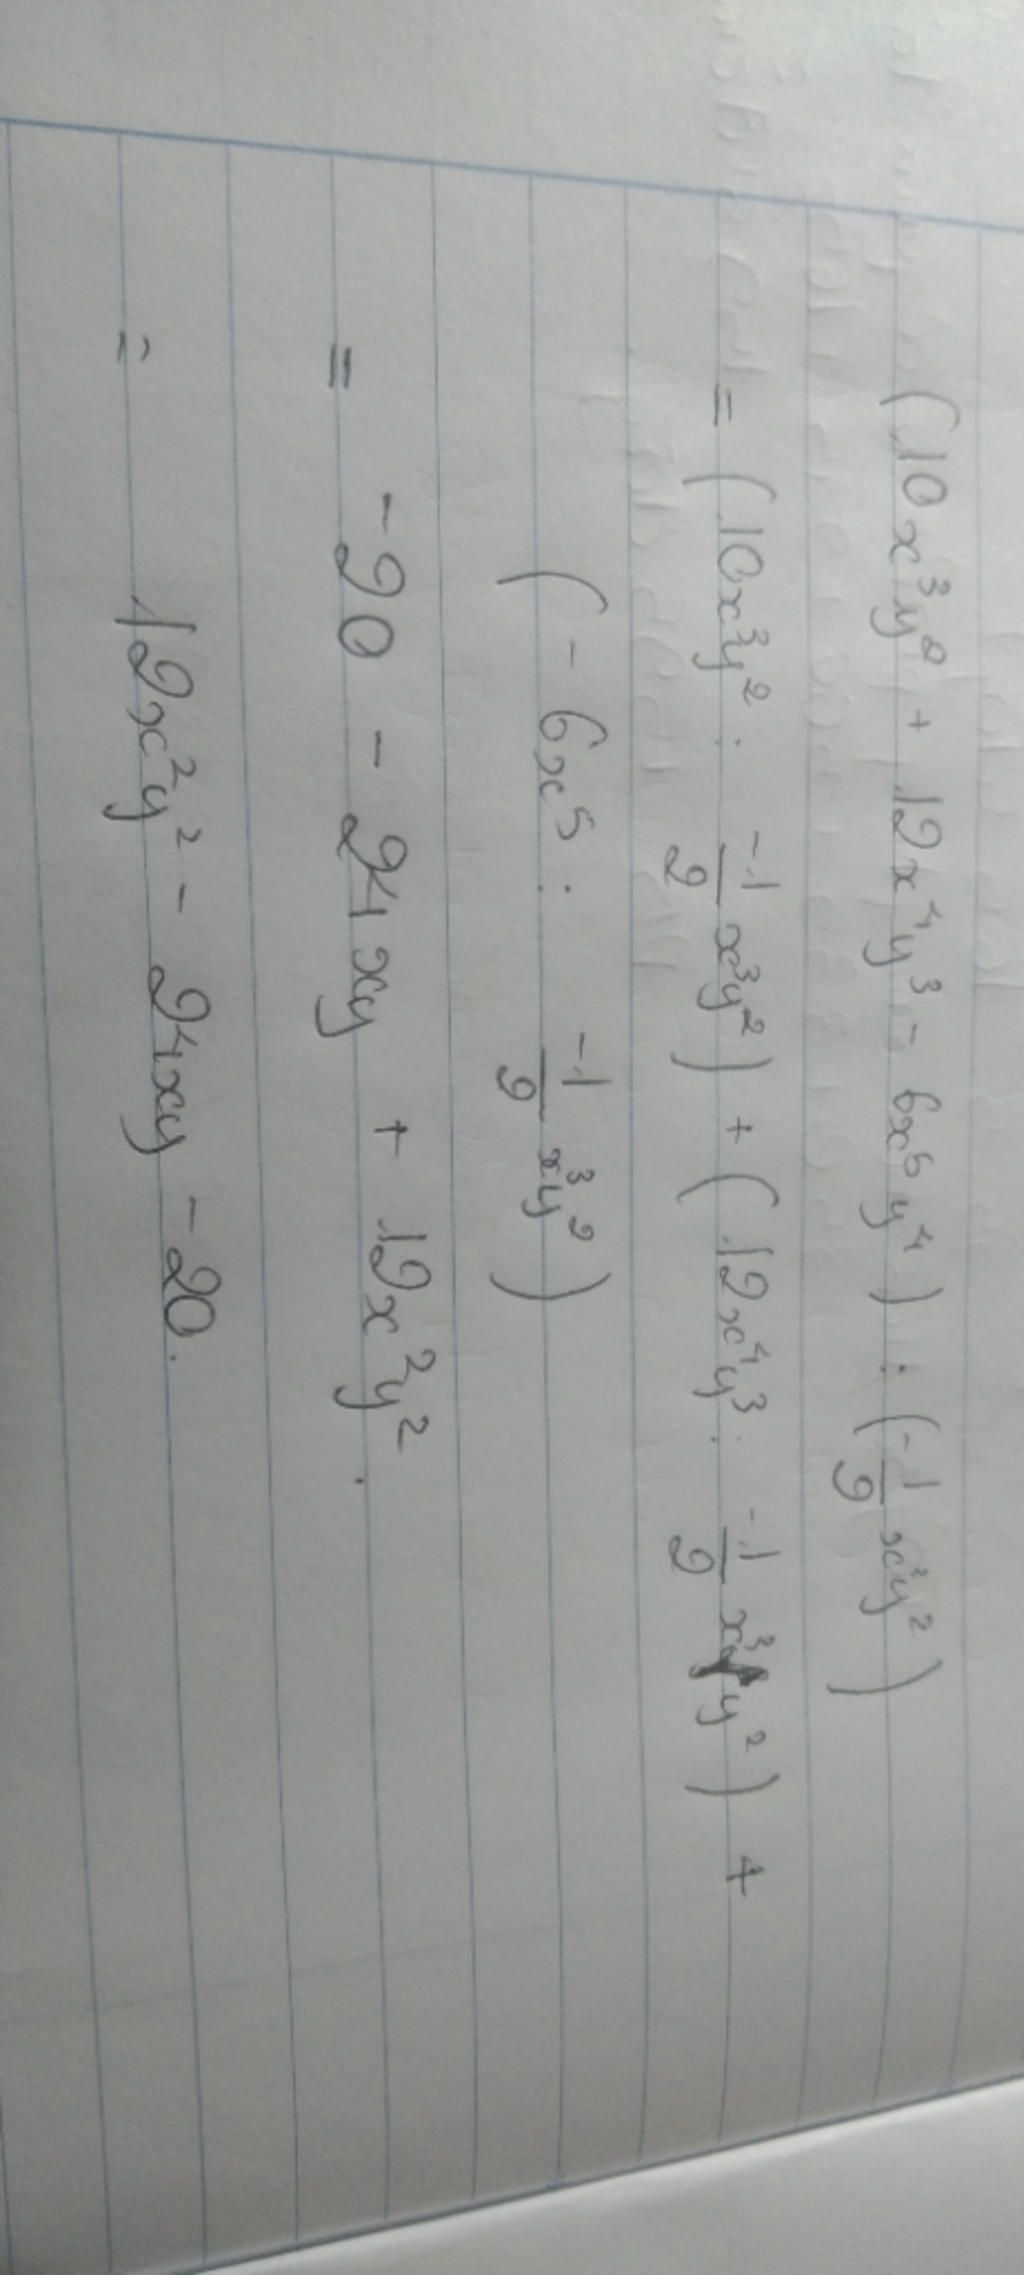 (10x³y² + 12x⁴y³ - 6x⁵y⁴) : (-1/2 x³y²)
= (10x³y² : -1/2 x³y²) + (12x⁴y³ : -1/2 x³y²) +
(- 6x⁵ : -1/2 x³y²)
= -20 - 24xy + 12x²y².
= 12x²y² - 24xy - 20.